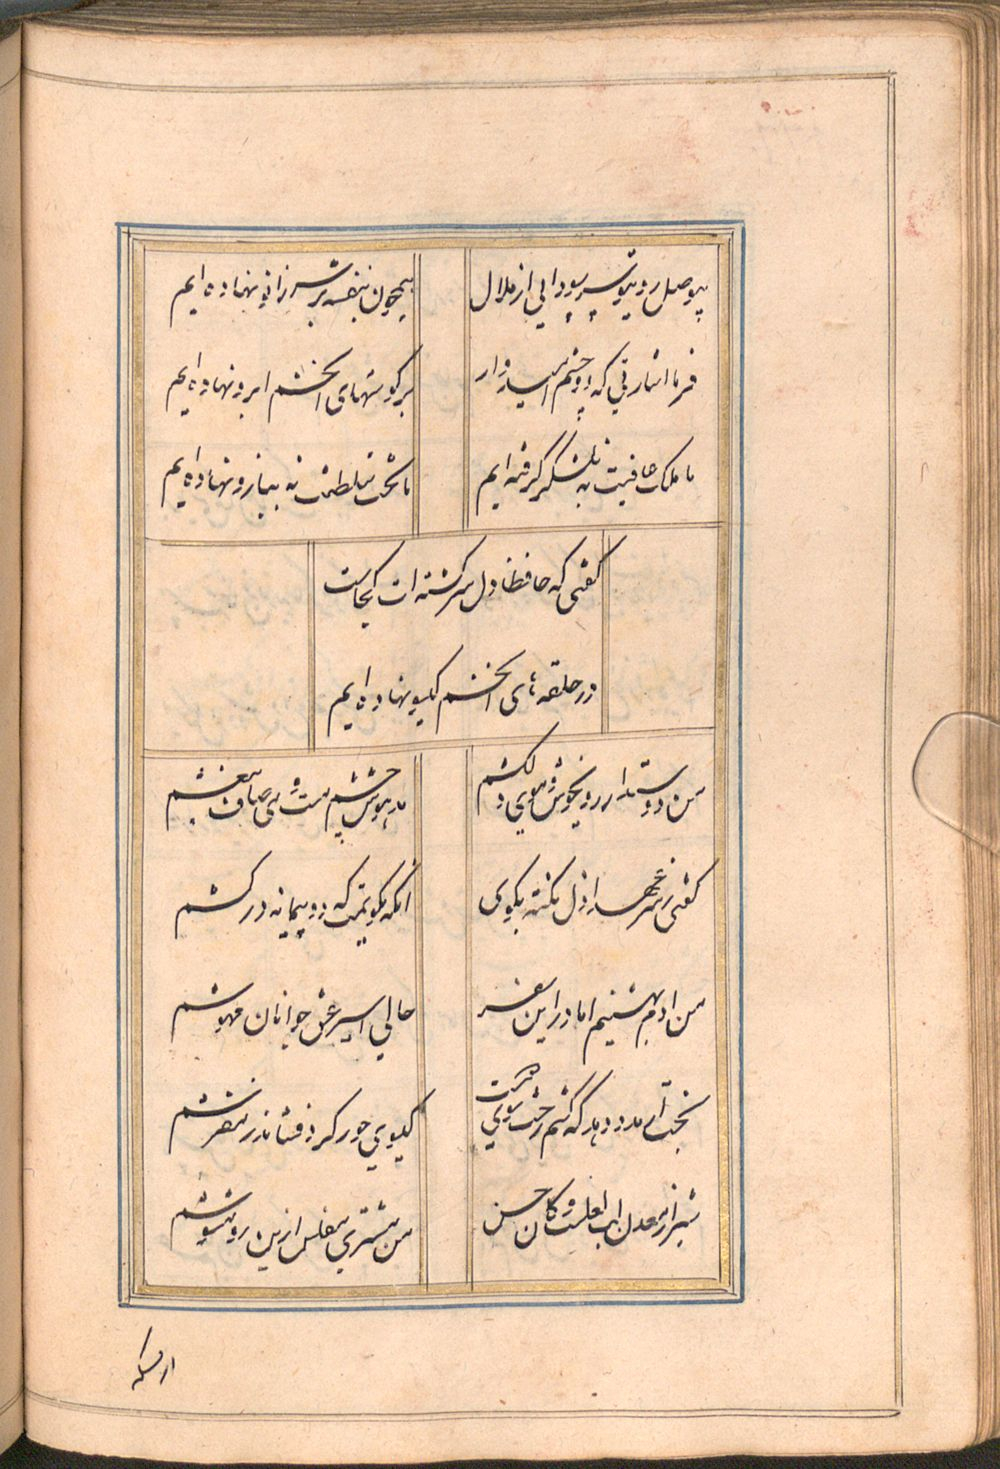 بیوصل رویتو سر سودایی از ملال
همچون بنفشه بر سر زانو نهاده ایم
فرما اشارتی که دو چشم امیدوار
بر گوشهای آن خم ابرو نهاده ایم
ما ملک عافیت نه بلشکر گرفته ایم
ما تخت سلطنت نه ببازو نهاده ایم
گفتی که حافظا دل سرگشته ات کجاست
در حلقه های آن خم گیسو نهاده ایم
من دوستدار رویخوش و موی دلکشم
مدهوش چشم مست و می صاف بیغشم
گفتی ز سر عهد ازل نکته بگوی
آنگه بگویمت که دو پیمانه در کشم
من آدم بهشتیم اما در این سفر
حالی اسیر عشق جوانان مهوشم
بخت ار مدد دهد که کشم رخت سوی دوست
گیسوی حور گرد فشاند ز مفرشم
شیراز معدن لب لعلست و کان حسن
من مشتری مفلس ازین رو مشوشم
از بسکه